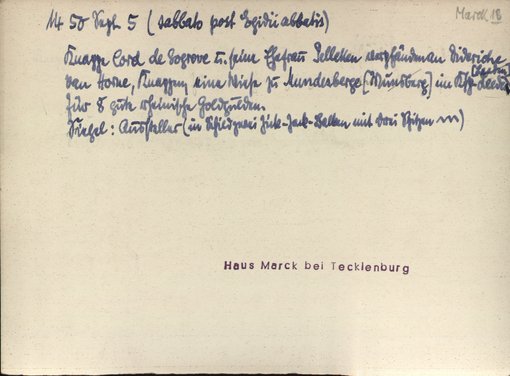 Marck 18
1450 Sept 5 (sabbato post Egidii abbatis)
Knappe Cord de Sogrove u. seine Ehefrau Pelleken verpfänden an Diderike
van Horne, Knappen, eine Wiese zu Mundesberge (Munsberg) im Kspl.
für 8 gute rheinische Goldgulden.
Siegel: Aussteller (in Schild zwei Zick-Zack-Balken mit drei Spitzen)
Haus Marck bei Tecklenburg